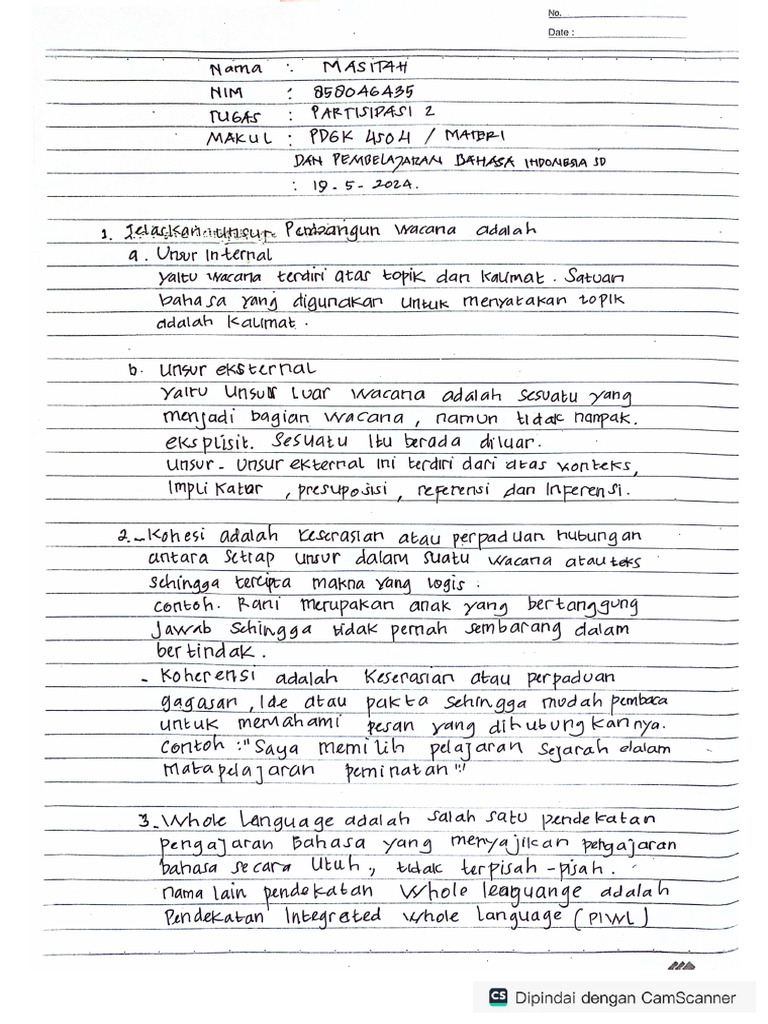 No.
Date :
Nama : MASITAH
NIM : 858046435
TUGAS : PARTISIPASI 2
MAKUL : PDGK 4504 / MATERI
DAN PEMBELAJARAN BAHASA INDONESIA SD
: 19-5-2024.
1. Jelaskan unsur Pembangun wacana adalah
a. Unsur Internal
yaitu wacana terdiri atas topik dan kalimat. Satuan
bahasa yang digunakan untuk menyatakan topik
adalah kalimat.
b. Unsur eksternal
yaitu Unsur luar wacana adalah sesuatu yang
menjadi bagian wacana, namun tidak nampak.
eksplisit. Sesuatu itu berada diluar.
Unsur-Unsur ekternal ini terdiri dari atas konteks,
Implikatur, presuposisi, referensi dan Inferensi.
2. - Kohesi adalah keserasian atau perpaduan hubungan
antara setiap unsur dalam suatu wacana atau teks
sehingga tercipta makna yang logis.
contoh. Rani merupakan anak yang bertanggung
Jawab sehingga tidak pernah sembarang dalam
bertindak.
- Koherensi adalah Keserasian atau perpaduan
gagasan, Ide atau pakta sehingga mudah pembaca
untuk memahami pesan yang dihubungkannya.
contoh :"Saya memilih pelajaran sejarah dalam
matapelajaran peminatan"
3. Whole Language adalah salah satu pendekatan
pengajaran Bahasa yang menyajikan pengajaran
bahasa secara Utuh, tidak terpisah-pisah.
nama lain pendekatan Whole leaguange adalah
Pendekatan Integrated whole language (PIWL)
CS Dipindai dengan CamScanner